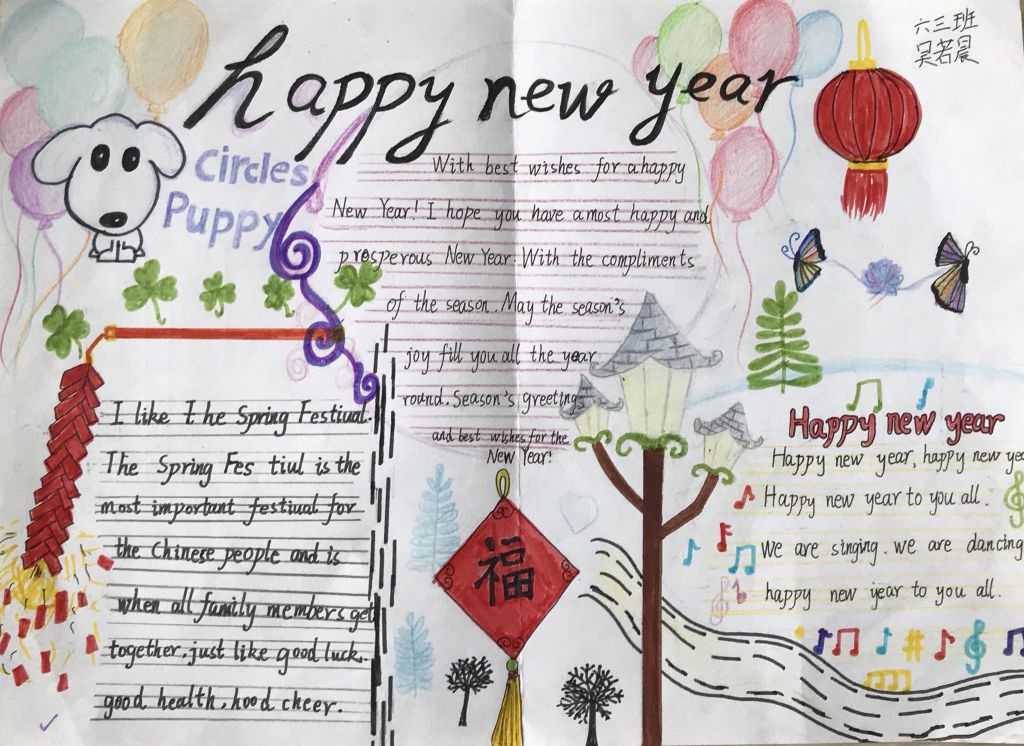 happy new year
六三班
吴若晨
Circles
Puppy
With best wishes for a happy
New Year! I hope you have a most happy and
prosperous New Year. With the compliments
of the season. May the season's
joy fill you all the year
round. Season's greetings
and best wishes for the
New Year!
I like The Spring Festiual.
The Spring Fes tiul is the
most important festiual for
the Chinese people and is
when all family members get
together, just like good luck.
good health, hood cheer.
福
Happy new year
Happy new year, happy new yea
Happy new year to you all.
We are singing. we are dancing
happy new year to you all.